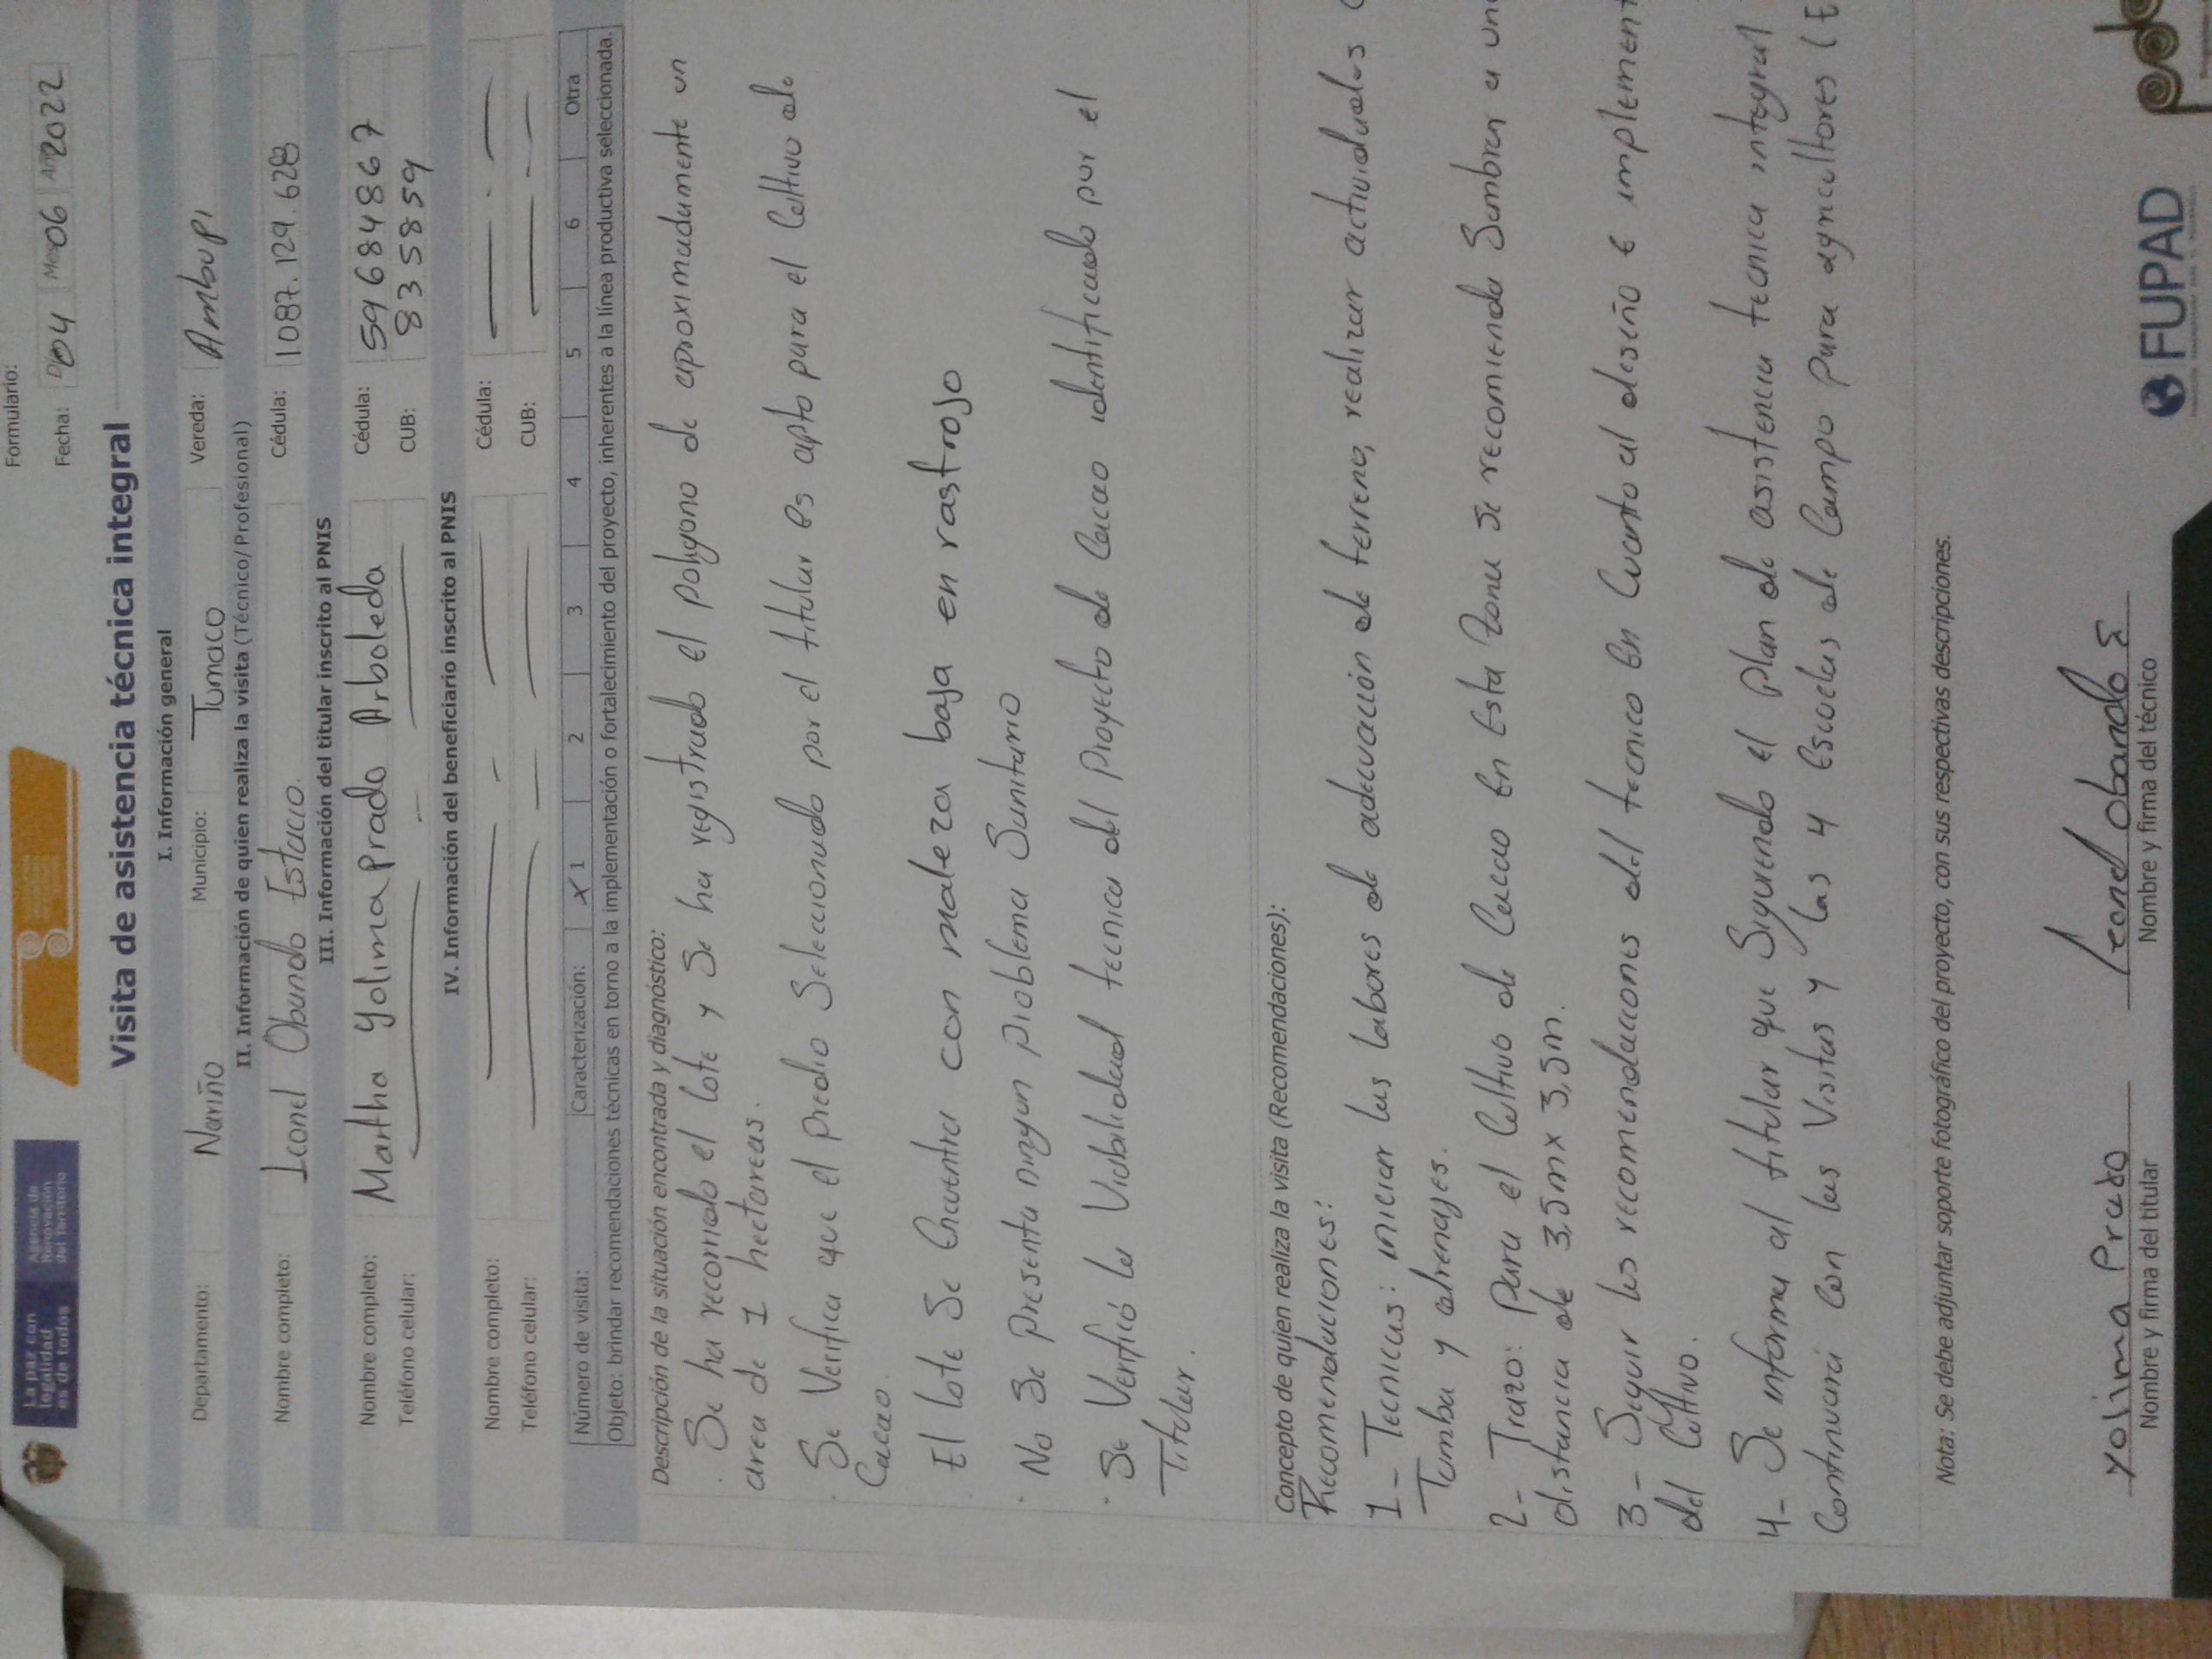 La paz con
legalidad
es de todos
Agencia de
Renovación
del Territorio
Formulario:
Fecha: Día 04 Mes 06 Año 2022
Visita de asistencia técnica integral
I. Información general
Departamento: Nariño Municipio: Tumaco Vereda: Ambupi
II. Información de quien realiza la visita (Técnico/ Profesional)
Nombre completo: Leonel Obando Estacio. Cédula: 1087.129.628
III. Información del titular inscrito al PNIS
Nombre completo: Martha Yolima Prado Arboleda Cédula: 59684867
Teléfono celular: — CUB: 8335859
IV. Información del beneficiario inscrito al PNIS
Nombre completo: — Cédula: —
Teléfono celular: — CUB: —
Número de visita: Caracterización: X 1 2 3 4 5 6 Otra
Objeto: brindar recomendaciones técnicas en torno a la implementación o fortalecimiento del proyecto, inherentes a la línea productiva seleccionada.
Descripción de la situación encontrada y diagnóstico:
· Se ha recorrido el lote y Se ha registrado el poligono de aproximadamente un
area de 1 hectareas.
· Se Verifica que el predio Seleccionado por el titular es apto para el Cultivo de
Cacao.
· El lote Se Encuentra con maleza baja en rastrojo
· No Se Presenta ningun problema Sanitario
· Se Verificó la Viabilidad tecnica del Proyecto de Cacao identificado por el
Titular.
Concepto de quien realiza la visita (Recomendaciones):
Recomendaciones:
1- Tecnicas: iniciar las labores de adecuación de terreno, realizar actividades
Tumba y drenajes.
2- Trazo: para el Cultivo de Cacao en Esta Zona se recomienda Sembrar a una
distancia de 3,5m x 3,5m.
3- Seguir las recomendaciones del tecnico en Cuanto al diseño e implement
del Cultivo.
4- Se informa al titular que Siguiendo el plan de asistencia tecnica integral
Continuara con las Visitas y las 4 Escuelas de Campo para agricultores (E
Nota: Se debe adjuntar soporte fotográfico del proyecto, con sus respectivas descripciones.
Yolima Prado Leonel Obando E
Nombre y firma del titular Nombre y firma del técnico
FUPAD